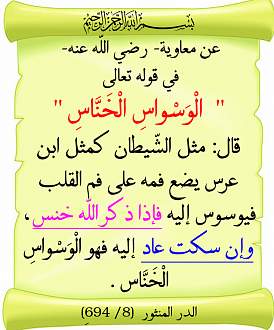 بسم الله الرحمن الرحيم
عن معاوية- رضي الله عنه-
في قوله تعالى
" الْوَسْوَاسِ الْخَنَّاسِ "
قال: مثل الشّيطان كمثل ابن
عرس يضع فمه على فم القلب
فيوسوس إليه فإذا ذكر الله خنس،
وإن سكت عاد إليه فهو الْوَسْوَاسِ
الْخَنَّاس .
الدر المنثور (8/ 694)